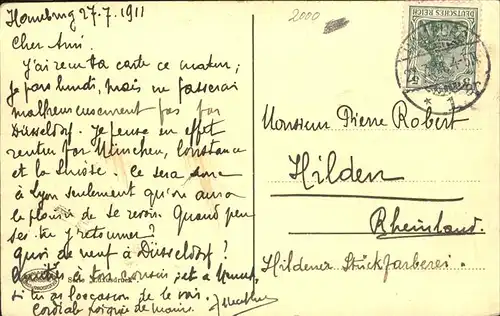 Homburg 27.7.1911
2000
DEUTSCHES REICH
Cher Ami.
J'ai reçu ta carte ce matin;
Je pars lundi, mais ne passerai
malheureusement pas par
Düsseldorf. Je pense en effet
rentrer par München, Constance
et la Suisse. Ce sera donc
à Lyon seulement qu'on aura
le plaisir de se revoir. Quand penses-tu y retourner?
Quoi de neuf à Düsseldorf?
à ton cousin, et à
si tu as l'occasion de le voir.
Cordiale poignée de mains.
Monsieur Pierre Robert
Hilden
Rheinland.
Hildener Stückfärberei.